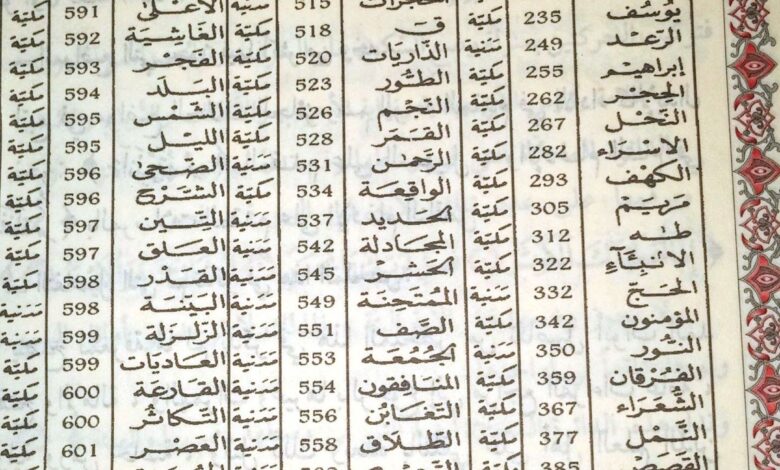 يُوسُف 235 مكيّة الحُجرَات 515 مدنية الأعْلىٰ 591 مكيّة
الرّعد 249 مدنية ق 518 مكيّة الغَاشِيَة 592 مكيّة
إبراهيم 255 مكيّة الذّاريَات 520 مكيّة الفَجْر 593 مكيّة
الحِجر 262 مكيّة الطّور 523 مكيّة البَلَد 594 مكيّة
النّحْل 267 مكيّة النّجْم 526 مكيّة الشّمْس 595 مكيّة
الاسْراء 282 مكيّة القَمَر 528 مكيّة الليْل 595 مكيّة
الكهف 293 مكيّة الرّحمٰن 531 مدنية الضّحىٰ 596 مكيّة
مَريَم 305 مكيّة الواقِعَة 534 مكيّة الشّرْح 596 مكيّة
طٰه 312 مكيّة الحَديد 537 مدنية التّين 597 مكيّة
الانبيَاء 322 مكيّة المجَادلة 542 مدنية العَلق 597 مكيّة
الحَجّ 332 مدنية الحَشْر 545 مدنية القَدْر 598 مكيّة
المؤمنون 342 مكيّة المُمْتحِنة 549 مدنية البَيّنَة 598 مدنية
النّور 350 مدنية الصّف 551 مدنية الزّلزَلة 599 مدنية
الفُرقان 359 مكيّة الجُمُعَة 553 مدنية العَاديَات 599 مكيّة
الشُّعَرَاء 367 مكيّة المنَافقون 554 مدنية القَارعَة 600 مكيّة
النّمْل 377 مكيّة التّغابُن 556 مدنية التّكاثر 600 مكيّة
385 الطّلاق 558 مدنية العَصْر 601 مكيّة